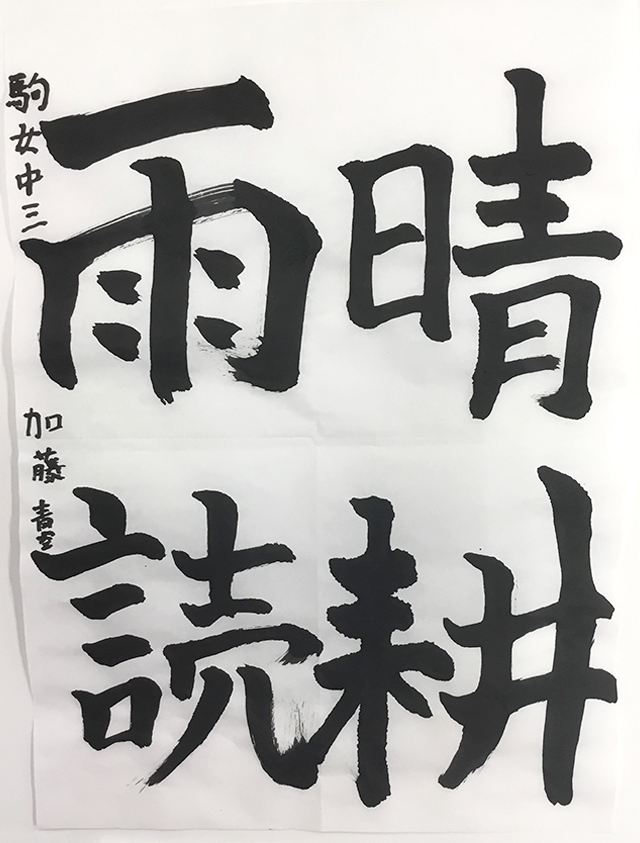 晴耕
雨読
駒女中三
加藤